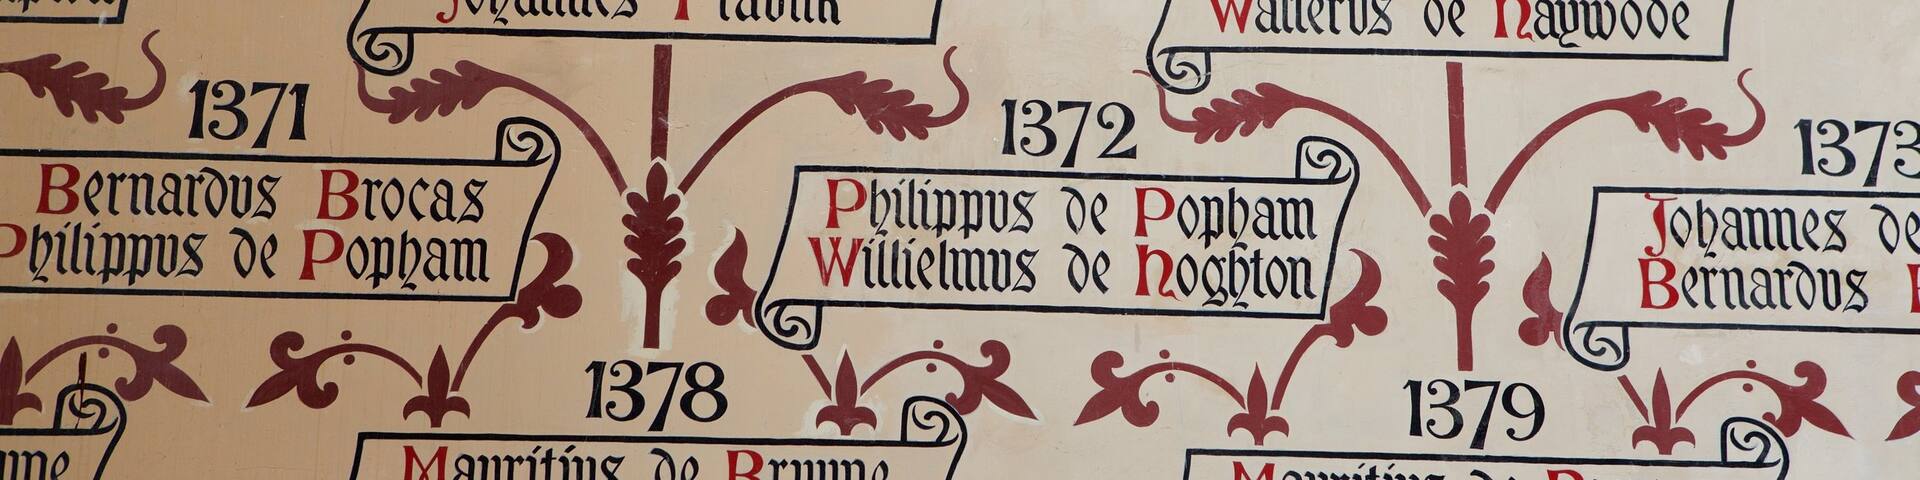 Johannes
Wallerus de Haywode
1371
Bernardus Brocas
Philippus de Popham
1372
Philippus de Popham
Willielmus de Hoghton
1373
Johannes de
Bernardus
1378
Mauritius de Bruyne
1379
Mauritius de